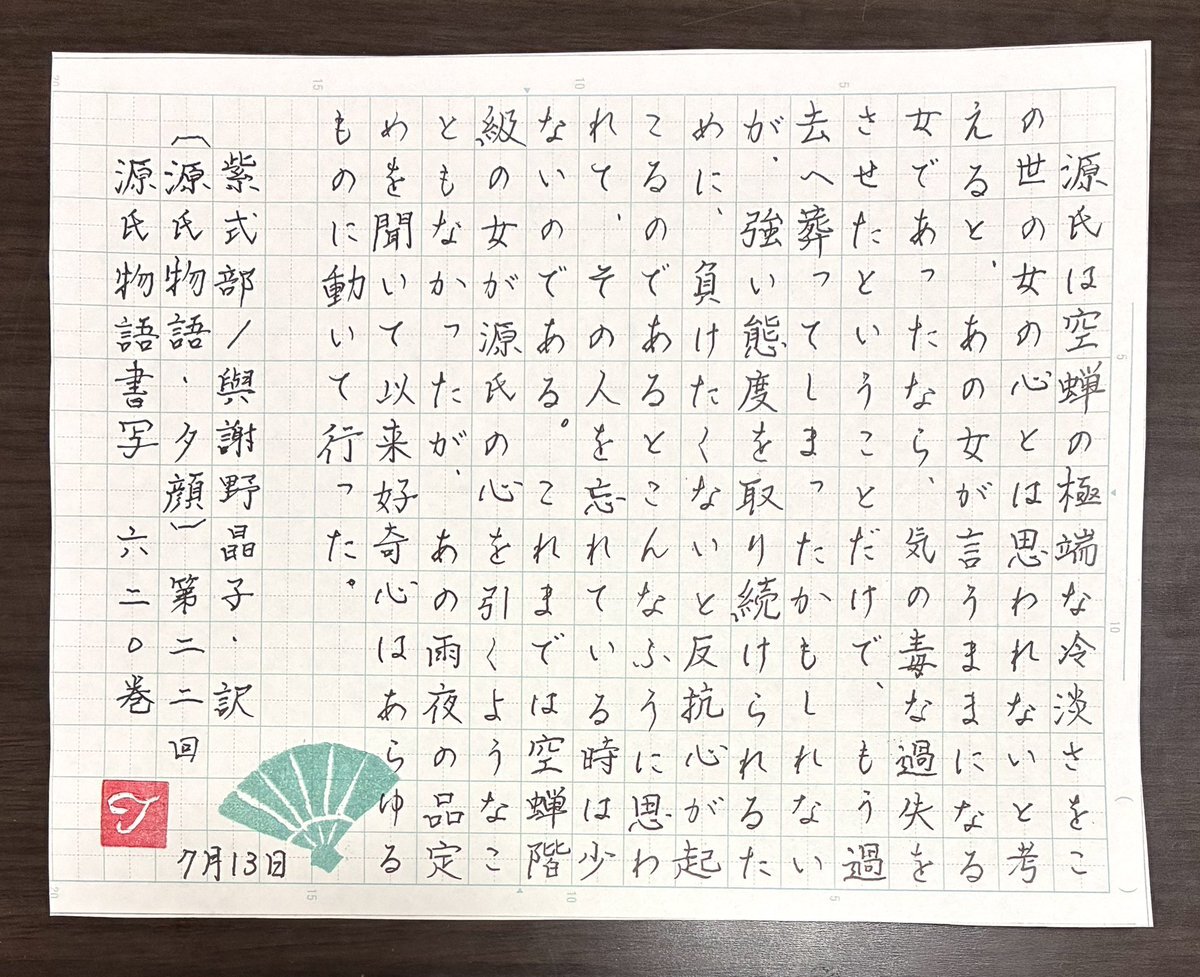 源氏は空蝉の極端な冷淡さをこ
の世の女の心とは思われないと考
えると、あの女が言うままになる
女であったなら、気の毒な過失を
させたということだけで、もう過
去へ葬ってしまったかもしれない
が、強い態度を取り続けられるた
めに、負けたくないと反抗心が起
こるのであるとこんなふうに思わ
れて、その人を忘れている時は少
ないのである。これまでは空蝉階
級の女が源氏の心を引くようなこ
ともなかったが、あの雨夜の品定
めを聞いて以来好奇心はあらゆる
ものに動いて行った。
紫式部/與謝野晶子・訳
(源氏物語・夕顔)第二二回
源氏物語書写 六二〇巻
7月13日
20
15
10
5
5
10
15
10
5
20